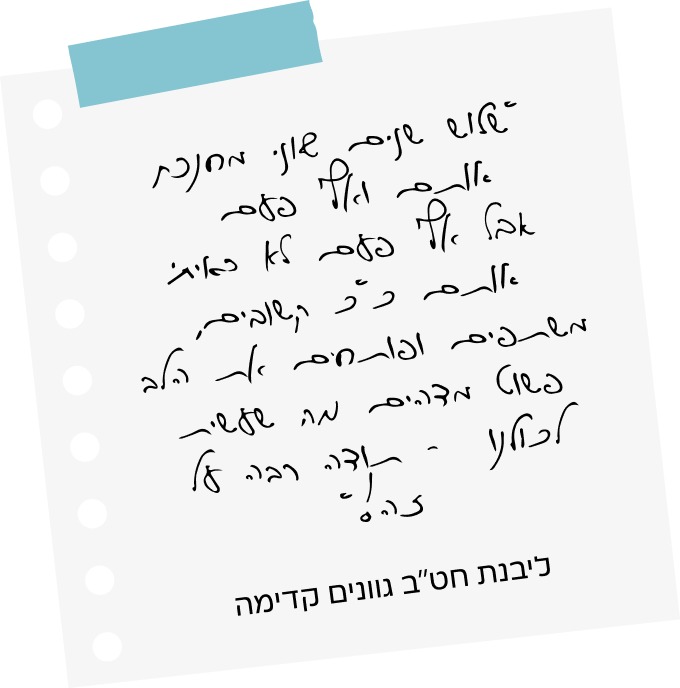 "שלוש שנים שאני מחנכת
אותם ואף פעם
אבל אף פעם לא ראיתי
אותם כ"כ קשובים,
משתפים ופותחים את הלב
פשוט מדהים מה שעשית
לכולנו - תודה רבה על
זה!"
ליבנת חט"ב גוונים קדימה